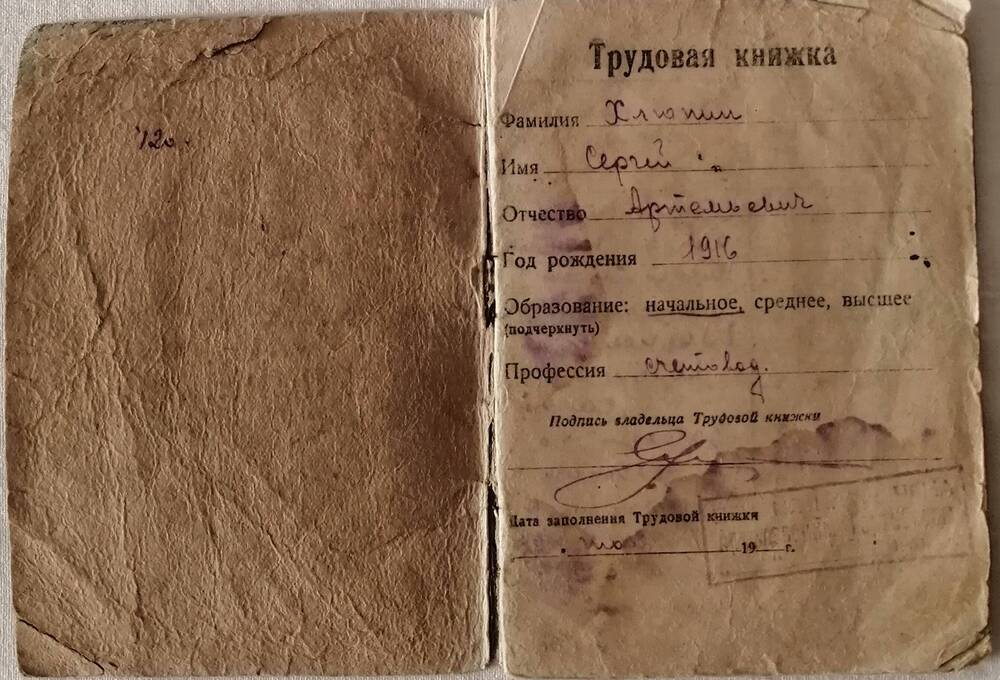 120.
Трудовая книжка
Фамилия Хлюпин
Имя Сергей
Отчество Артемьевич
Год рождения 1916
Образование: начальное, среднее, высшее
(подчеркнуть)
Профессия счетовод.
Подпись владельца Трудовой книжки
Дата заполнения Трудовой книжки
19 г.